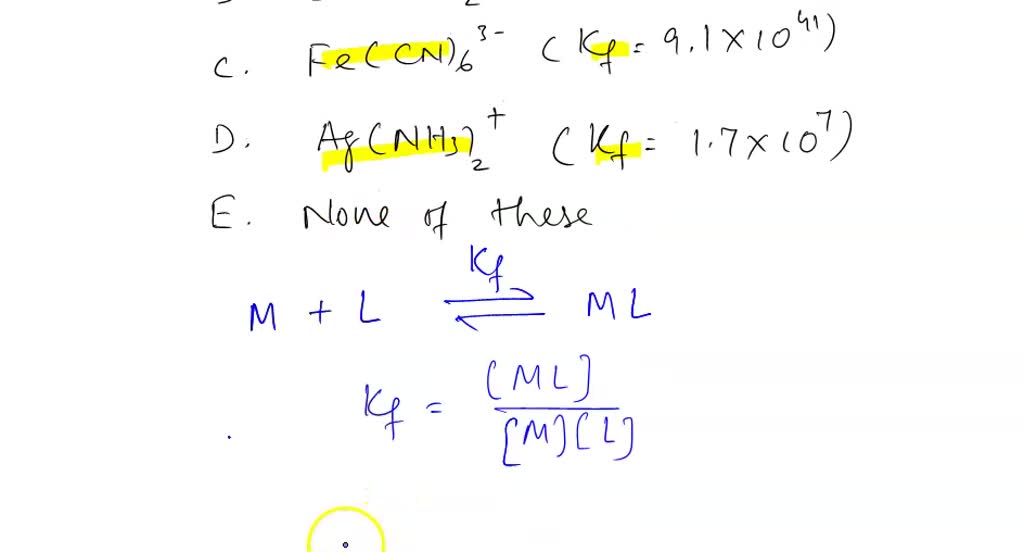 C. Fe(CN)₆³⁻ (Kf = 9.1×10⁴¹)
D. Ag(NH₃)₂⁺ (Kf = 1.7×10⁷)
E. None of these
Kf
M + L ⇌ ML
Kf = [ML] / [M][L]